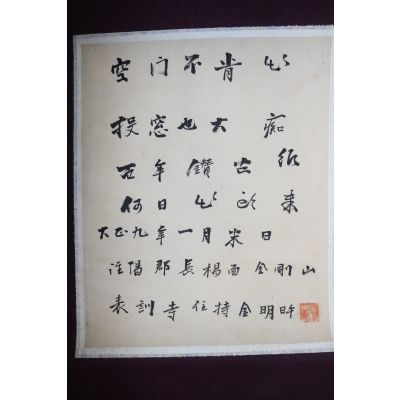 空门不肯出
投窓也大痴
百年鑽古紙
何日出頭来
大正九年一月末日
淮陽郡長楊面金剛山
表訓寺住持金明昕